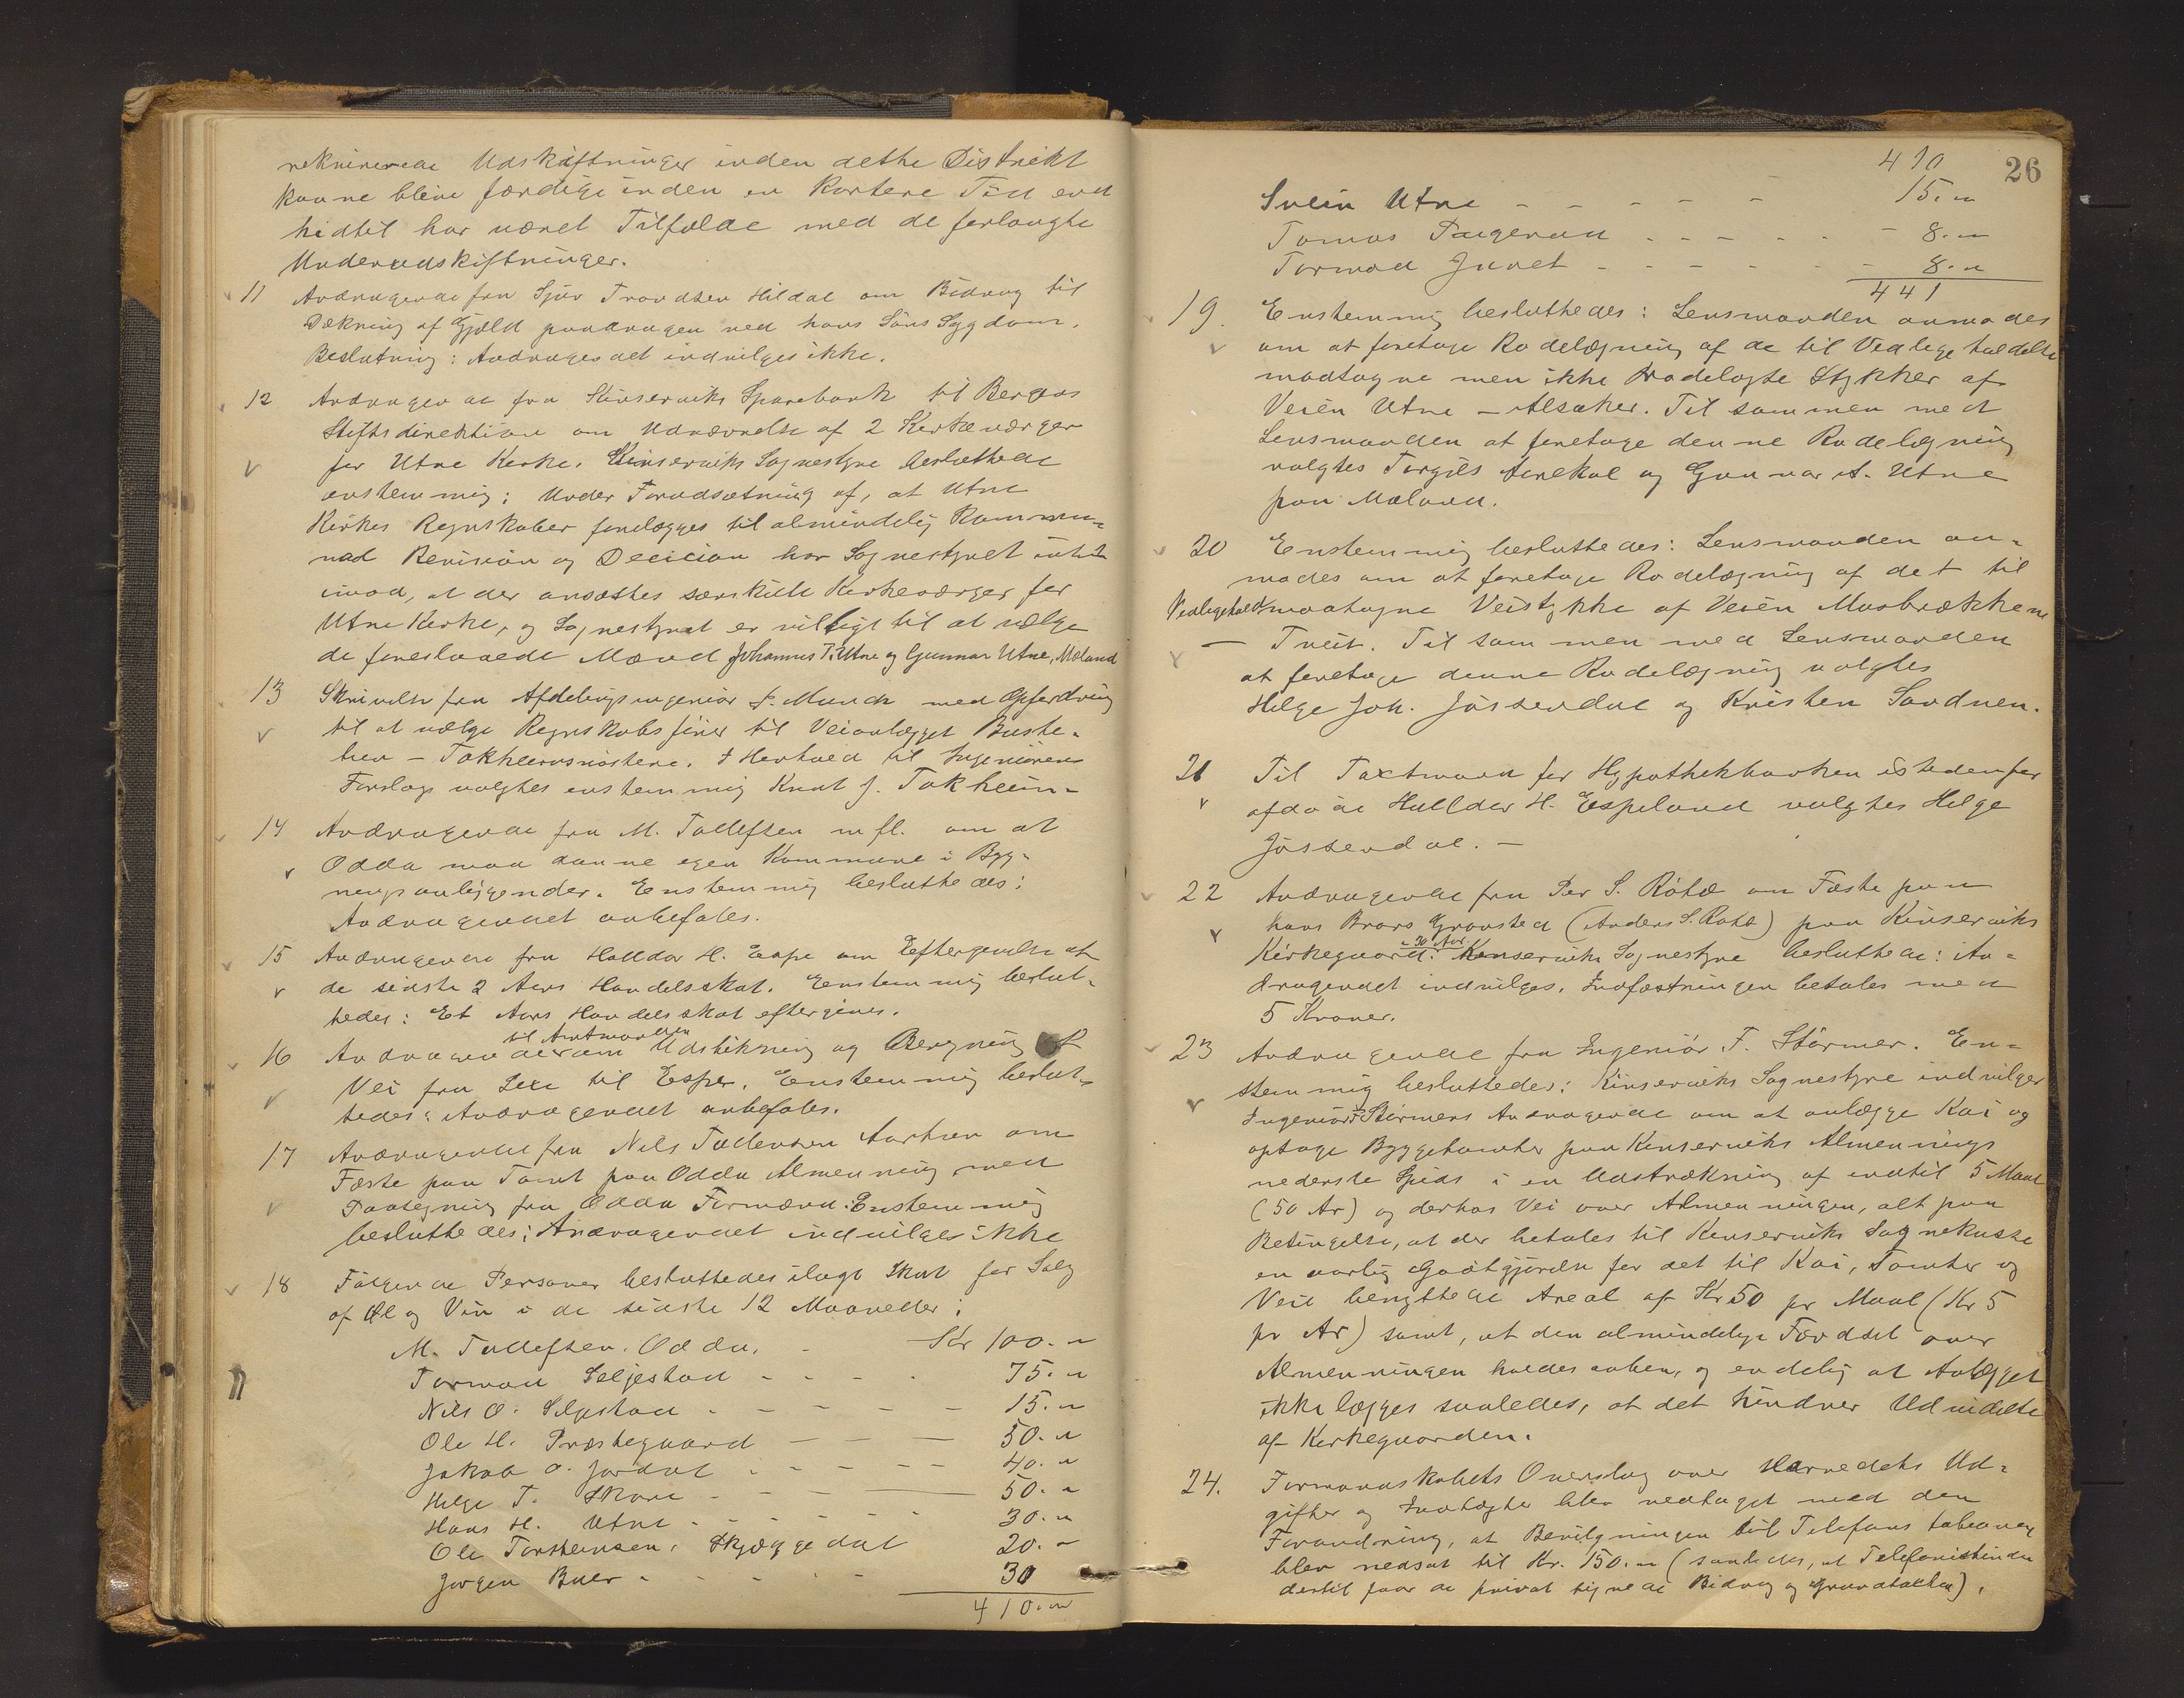 rekvirerede Udskiftninger inden dette Distrikt
kunne blive færdige inden en kortere Tid end
hidtil har været Tilfælde med de forlangte
Underudskiftninger.
11 Andragende fra Sjur Trondsen Hildal om Bidrag til
Dækning af Gjæld paadragen ved hans Søns Sygdom.
Beslutning: Andragendet indvilges ikke.
12 Andragende fra Kinserviks Sparebank til Bergens
Stiftsdirektion om Udnævnelse af 2 Kirkeværger
for Utne Kirke. Kinserviks Sognestyre besluttede
enstemmig: Under Forudsætning af, at Utne
Kirkes Regnskaber forelægges til almindelig Kommu-
nal Revision og Decision har Sognestyret intet
imod, at der ansættes særskilte Kirkeværger for
Utne Kirke, og Sognestyret er villigt til at vælge
de foreslaaede Mænd Johannes T. Utne og Gunnar Utne, Mæland
13 Skrivelse fra Afdelingsingeniør Munch med Opfordring
til at vælge Regnskabsfører til Veianlægget Buste-
tun - Tokheimsnøstene. I Henhold til Ingeniørens
Forslag valgtes enstemmig Knut J. Tokheim -
14 Andragende fra M. Tollefsen m fl. om at
Odda maa danne egen Kommune i Byg-
ningsanliggender. Enstemmig besluttedes:
Andragendet anbefales.
15 Andragende fra Halldor H. Espe om Eftergivelse af
de sidste 2 Aars Handelsskat. Enstemmig beslut-
tedes: Et Aars Handelsskat eftergives.
til Amtmanden
16 Andragende om Udstikning og Beregning af
Vei fra Lexe til Espe. Enstemmig beslut-
tedes: Andragendet anbefales.
17 Andragende fra Nils Tollevsen Aartun om
Fæste paa Tomt paa Odda Almenning med
Paategning fra Odda Formænd. Enstemmig
besluttedes: Andragendet indvilges ikke
18 Følgende Personer besluttedes ilagt Skat for Salg
af Øl og Vin i de sidste 12 Maaneder:
M. Tollefsen. Odda. - Kr 100. "
Tormod Seljestad - - - - 75. "
Nils O. Seljestad - - - - - 15. "
Ole H. Præstegaard - - - 50. "
Jakob O. Jordal - - - - - 40. "
Helge T. Skare - - - 50. "
Hans H. Utne - - - - - 30. "
Ole Torsteinsen, Skjæggedal 20. "
Jørgen Buer - - - - - 30
410. "
26
410
Svein Utne - - - - - 15. "
Tomas - - - - - 8. "
Tormod - - - - - 8. "
441
19. Enstemmig besluttedes: Lensmanden anmodes
om at foretage Rodelægning af de til Vedligeholdelse
modtagne men ikke rodelagte Stykker af
Veien Utne - Alsaker. Til sammen med
Lensmanden at foretage denne Rodelægning
valgtes Torgils Aarekol og Gunnar A. Utne
paa Mæland.
20 Enstemmig besluttedes: Lensmanden an-
modes om at foretage Rodelægning af det til
Vedligehold modtagne Veistykke af Veien Maabrækkene
- Tveit. Til sammen med Lensmanden
at foretage denne Rodelægning valgtes
Helge Joh. Jøsendal og Kristen Sandven.
21 Til Taxtmand for Hypothekbanken istedenfor
afdøde Halldor H. Espeland valgtes Helge
Jøsendal. -
22 Andragende fra Per S. Røtæ om Fæste paa
hans Brors Gravsted (Anders S. Røtæ) paa Kinserviks
- 20 Aar -
Kirkegaard. Kinserviks Sognestyre besluttede: An-
dragendet indvilges. Indfæstningen betales med
5 Kroner.
23 Andragende fra Ingeniør F. Størmer. En-
stemmig besluttedes: Kinserviks Sognestyre indvilger
Ingeniør F. Størmers Andragende om at anlægge Kai og
optage Byggetomter paa Kinserviks Almennings
nederste Spids i en Udstrækning af indtil 5 Maal
(50 Ar) og derhos Vei over Almenningen, alt paa
Betingelse, at der betales til Kinserviks Sognekasse
en aarlig Godtgjørelse for det til Kai, Tomter og
Vei benyttede Areal af Kr 50 pr Maal (Kr 5
pr Ar) samt, at den almindelige Færdsel over
Almenningen holdes aaben, og endelig at Anlægget
ikke lægges saaledes, at det hindrer Udvidelse
af Kirkegaarden.
24. Formandskabets Overslag over Herredets Ud-
gifter og Indtægter blev vedtaget med den
Forandring, at Bevilgningen til Telefons
blev nedsat til Kr. 150. " (saaledes, at Telefonistinden
dertil faar de privat tegnede Bidrag og Grundtaxten).